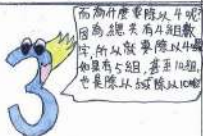 而為什麼要除以4呢?
因為總共有4組數
字,所以就要除以4喔
如果有5組,甚至10組,
也是除以5或除以10喔!
3